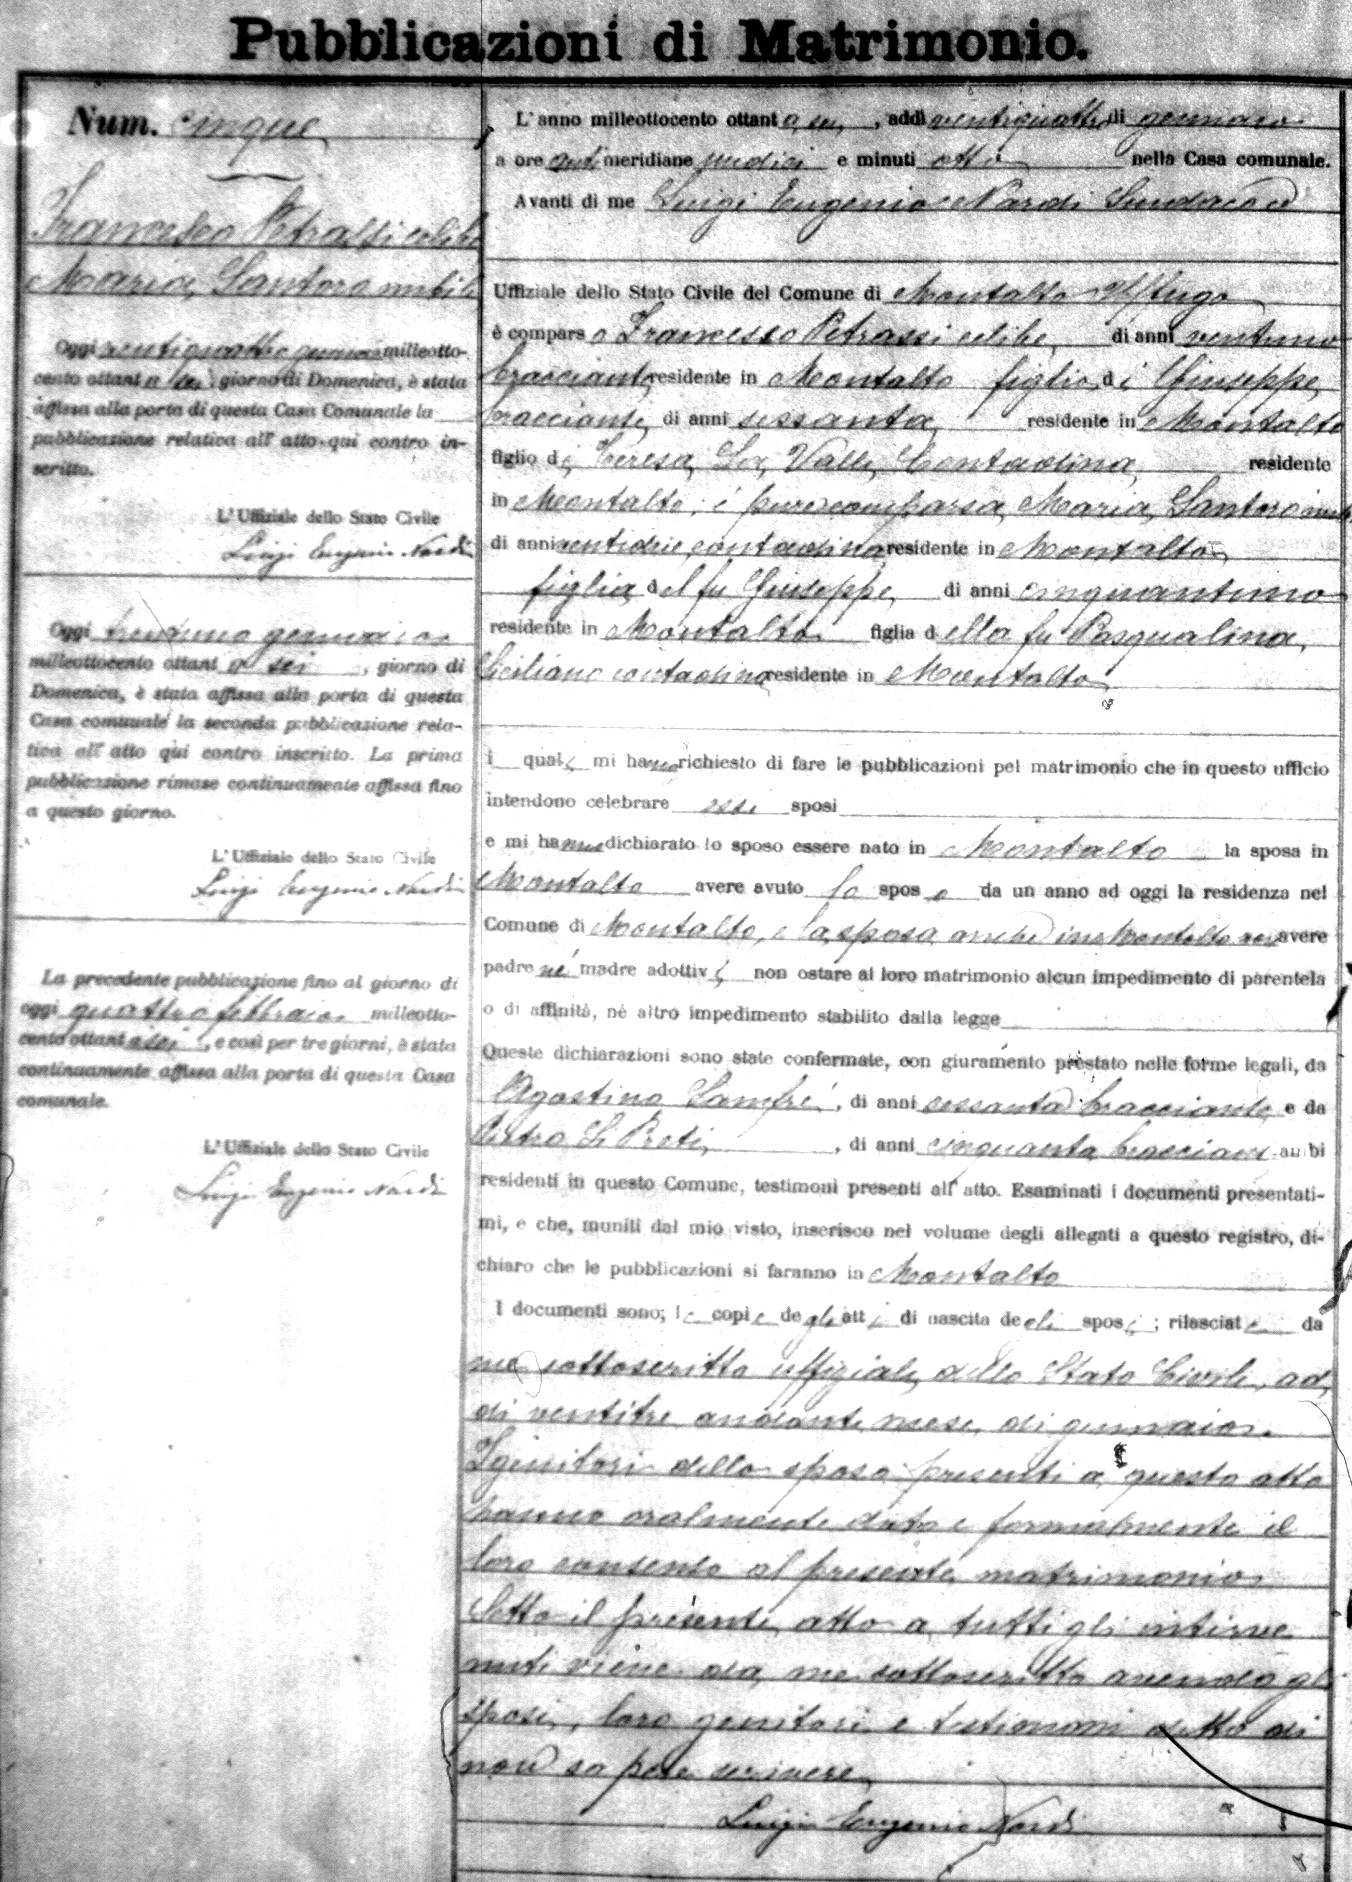 Pubblicazioni di Matrimonio.
Num. cinque
Francesco Petrassi celibe
Maria Santoro nubile
Oggi ventiquattro gennaio milleotto-
cento ottanta sei, giorno di Domenica, è stata
affissa alla porta di questa Casa Comunale la
pubblicazione relativa all' atto qui contro in-
scritto.
L' Uffiziale dello Stato Civile
Luigi Eugenio Nardi
Oggi trentuno gennaio
milleottocento ottanta sei, giorno di
Domenica, è stata affissa alla porta di questa
Casa comunale la seconda pubblicazione rela-
tiva all' atto qui contro inscritto. La prima
pubblicazione rimase continuamente affissa fino
a questo giorno.
L' Uffiziale dello Stato Civile
Luigi Eugenio Nardi
La precedente pubblicazione fino al giorno di
oggi quattro febbraio milleotto-
cento ottanta sei, e così per tre giorni, è stata
continuamente affissa alla porta di questa Casa
comunale.
L' Uffiziale dello Stato Civile
Luigi Eugenio Nardi
L' anno milleottocento ottanta sei, addì ventiquattro di gennaio
a ore antimeridiane undici e minuti otto nella Casa comunale.
Avanti di me Luigi Eugenio Nardi Sindaco ed
Uffiziale dello Stato Civile del Comune di Montalto Uffugo
è comparso Francesco Petrassi celibe, di anni ventuno
bracciante residente in Montalto figlio di Giuseppe,
bracciante, di anni sessanta, residente in Montalto
figlio di Teresa La Valle, Contadina, residente
in Montalto; è pure comparsa Maria Santoro nubile
di anni ventidue, contadina residente in Montalto
figlia del fu Giuseppe, di anni cinquantuno
residente in Montalto figlia della fu Pasqualina,
Siciliano contadina residente in Montalto
i quali mi hanno richiesto di fare le pubblicazioni pel matrimonio che in questo ufficio
intendono celebrare essi sposi
e mi hanno dichiarato lo sposo essere nato in Montalto la sposa in
Montalto avere avuto lo sposo da un anno ad oggi la residenza nel
Comune di Montalto, e la sposa anche in Montalto non avere
padre né madre adottivi non ostare al loro matrimonio alcun impedimento di parentela
o di affinità, nè altro impedimento stabilito dalla legge
Queste dichiarazioni sono state confermate, con giuramento prestato nelle forme legali, da
Agostino Lanfré, di anni sessanta bracciante e da
Pietro Li Preti, di anni cinquanta bracciante ambi
residenti in questo Comune, testimoni presenti all' atto. Esaminati i documenti presentati-
mi, e che, muniti dal mio visto, inserisco nel volume degli allegati a questo registro, di-
chiaro che le pubblicazioni si faranno in Montalto
I documenti sono; le copie degli atti di nascita degli sposi; rilasciate da
me sottoscritto uffiziale dello Stato Civile, ad
di ventitre andante mese di gennaio.
I genitori dello sposo presenti a questo atto
hanno oralmente dato e formalmente il
loro consenso al presente matrimonio
Letto il presente atto a tutti gli interve
nuti viene da me sottoscritto avendo gli
sposi, loro genitori e testimoni detto di
non sapere scrivere
Luigi Eugenio Nardi